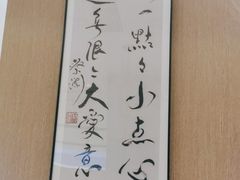 一點々小点心
無限々大愛意
蔡瀾